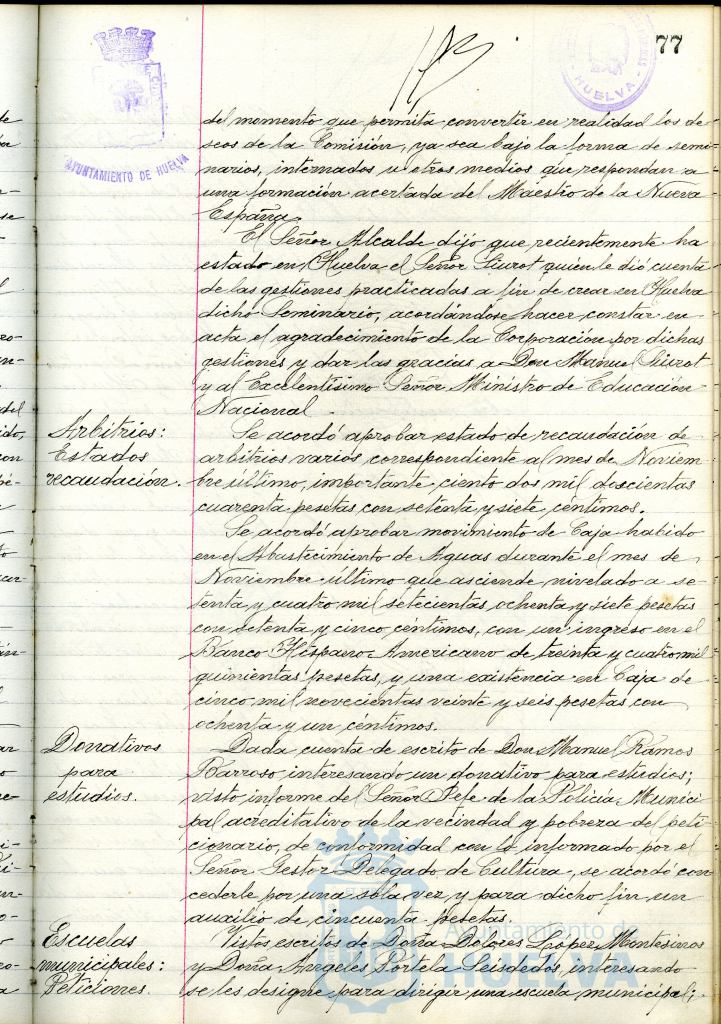 77
HUELVA
AYUNTAMIENTO DE HUELVA
del momento que permita convertir en realidad los de-
seos de la Comisión, ya sea bajo la forma de semi-
narios, internados u otros medios que respondan a
una formación acertada del Maestro de la Nueva
España.
El Señor Alcalde dijo que recientemente ha
estado en Huelva el Señor Siurot quien le dió cuenta
de las gestiones practicadas a fin de crear en Huelva
dicho Seminario, acordándose hacer constar en
acta el agradecimiento de la Corporación por dichas
gestiones y dar las gracias a Don Manuel Siurot
y al Excelentísimo Señor Ministro de Educación
Nacional.
Arbitrios:
Estados
recaudación.
Se acordó aprobar estado de recaudación de
arbitrios varios, correspondiente al mes de Noviem-
bre último, importante, ciento dos mil doscientas
cuarenta pesetas con setenta y siete céntimos.
Se acordó aprobar movimiento de Caja habido
en el Abastecimiento de Aguas durante el mes de
Noviembre último que asciende nivelado a se-
tenta y cuatro mil setecientas ochenta y siete pesetas
con setenta y cinco céntimos, con un ingreso en el
Banco Hispano-Americano de treinta y cuatro mil
quinientas pesetas, y una existencia en Caja de
cinco mil novecientas veinte y seis pesetas con
ochenta y un céntimos.
Donativos
para
estudios.
Dada cuenta de escrito de Don Manuel Ramos
Barroso interesando un donativo para estudios;
visto informe del Señor Jefe de la Policía Munici-
pal acreditativo de la vecindad y pobreza del peti-
cionario, de conformidad con lo informado por el
Señor Gestor Delegado de Cultura, se acordó con
cederle por una sola vez y para dicho fin un
auxilio de cincuenta pesetas.
Escuelas
municipales:
Peticiones.
Vistos escritos de Doña Dolores López Montesinos
y Doña Angeles Portela Seisdedos, interesando
se les designe para dirigir una escuela municipal;
Ayuntamiento de
HUELVA